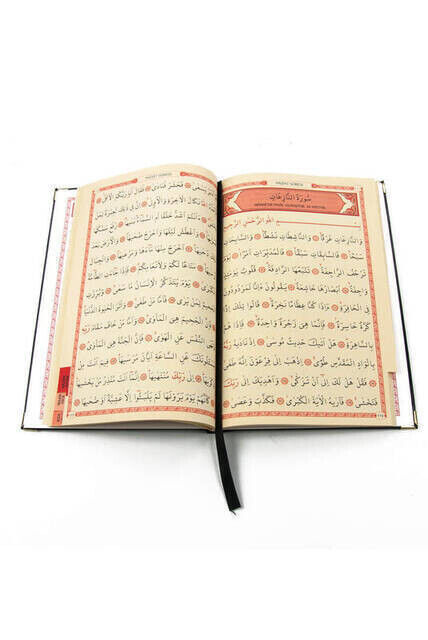 سُورَةُ النَّازِعَاتِ
اللهِ الرَّحْمٰنِ الرَّحِيمِ
وَالنَّازِعَاتِ غَرْقًا وَالنَّاشِطَاتِ نَشْطًا وَالسَّابِحَاتِ
سَبْحًا فَالسَّابِقَاتِ سَبْقًا فَالْمُدَبِّرَاتِ اَمْرًا يَوْمَ
تَرْجُفُ الرَّاجِفَةُ تَتْبَعُهَا الرَّادِفَةُ قُلُوبٌ يَوْمَئِذٍ
وَاجِفَةٌ اَبْصَارُهَا خَاشِعَةٌ يَقُولُونَ ءَاِنَّا لَمَرْدُودُونَ
فِى الْحَافِرَةِ ءَاِذَا كُنَّا عِظَامًا نَخِرَةً قَالُوا تِلْكَ اِذًا
كَرَّةٌ خَاسِرَةٌ فَاِنَّمَا هِىَ زَجْرَةٌ وَاحِدَةٌ فَاِذَا هُمْ
بِالسَّاهِرَةِ هَلْ اَتٰيكَ حَدِيثُ مُوسٰى اِذْ نَادٰيهُ رَبُّهُ
بِالْوَادِ الْمُقَدَّسِ طُوًى اِذْهَبْ اِلٰى فِرْعَوْنَ اِنَّهُ طَغٰى
فَقُلْ هَلْ لَكَ اِلٰى اَنْ تَزَكّٰى وَاَهْدِيَكَ اِلٰى رَبِّكَ
فَتَخْشٰى فَاَرٰيهُ الْاٰيَةَ الْكُبْرٰى فَكَذَّبَ وَعَصٰى
يَسْعٰى فَحَشَرَ فَنَادٰى فَقَالَ اَنَا رَبُّكُمُ الْاَعْلٰى
نَكَالَ الْاٰخِرَةِ وَالْاُولٰى اِنَّ فِى ذٰلِكَ لَعِبْرَةً لِمَنْ
ءَاَنْتُمْ اَشَدُّ خَلْقًا اَمِ السَّمَاءُ بَنٰيهَا رَفَعَ سَمْكَهَا
وَاَغْطَشَ لَيْلَهَا وَاَخْرَجَ ضُحٰيهَا وَالْاَرْضَ بَعْدَ
دَحٰيهَا اَخْرَجَ مِنْهَا مَاءَهَا وَمَرْعٰيهَا وَالْجِبَالَ
مَتَاعًا لَكُمْ وَلِاَنْعَامِكُمْ فَاِذَا جَاءَتِ الطَّامَّةُ
يَوْمَ يَتَذَكَّرُ الْاِنْسَانُ مَا سَعٰى وَبُرِّزَتِ
لِمَنْ يَرٰى فَاَمَّا مَنْ طَغٰى وَاٰثَرَ الْحَيٰوةَ الدُّنْيَا
فَاِنَّ الْجَحِيمَ هِىَ الْمَاْوٰى وَاَمَّا مَنْ خَافَ مَقَامَ رَبِّهِ
النَّفْسَ عَنِ الْهَوٰى فَاِنَّ الْجَنَّةَ هِىَ الْمَاْوٰى
عَنِ السَّاعَةِ اَيَّانَ مُرْسٰيهَا فِيمَ اَنْتَ مِنْ
اِلٰى رَبِّكَ مُنْتَهٰيهَا اِنَّمَا اَنْتَ مُنْذِرُ مَنْ يَخْشٰيهَا
كَاَنَّهُمْ يَوْمَ يَرَوْنَهَا لَمْ يَلْبَثُوا اِلَّا عَشِيَّةً اَوْ ضُحٰيهَا